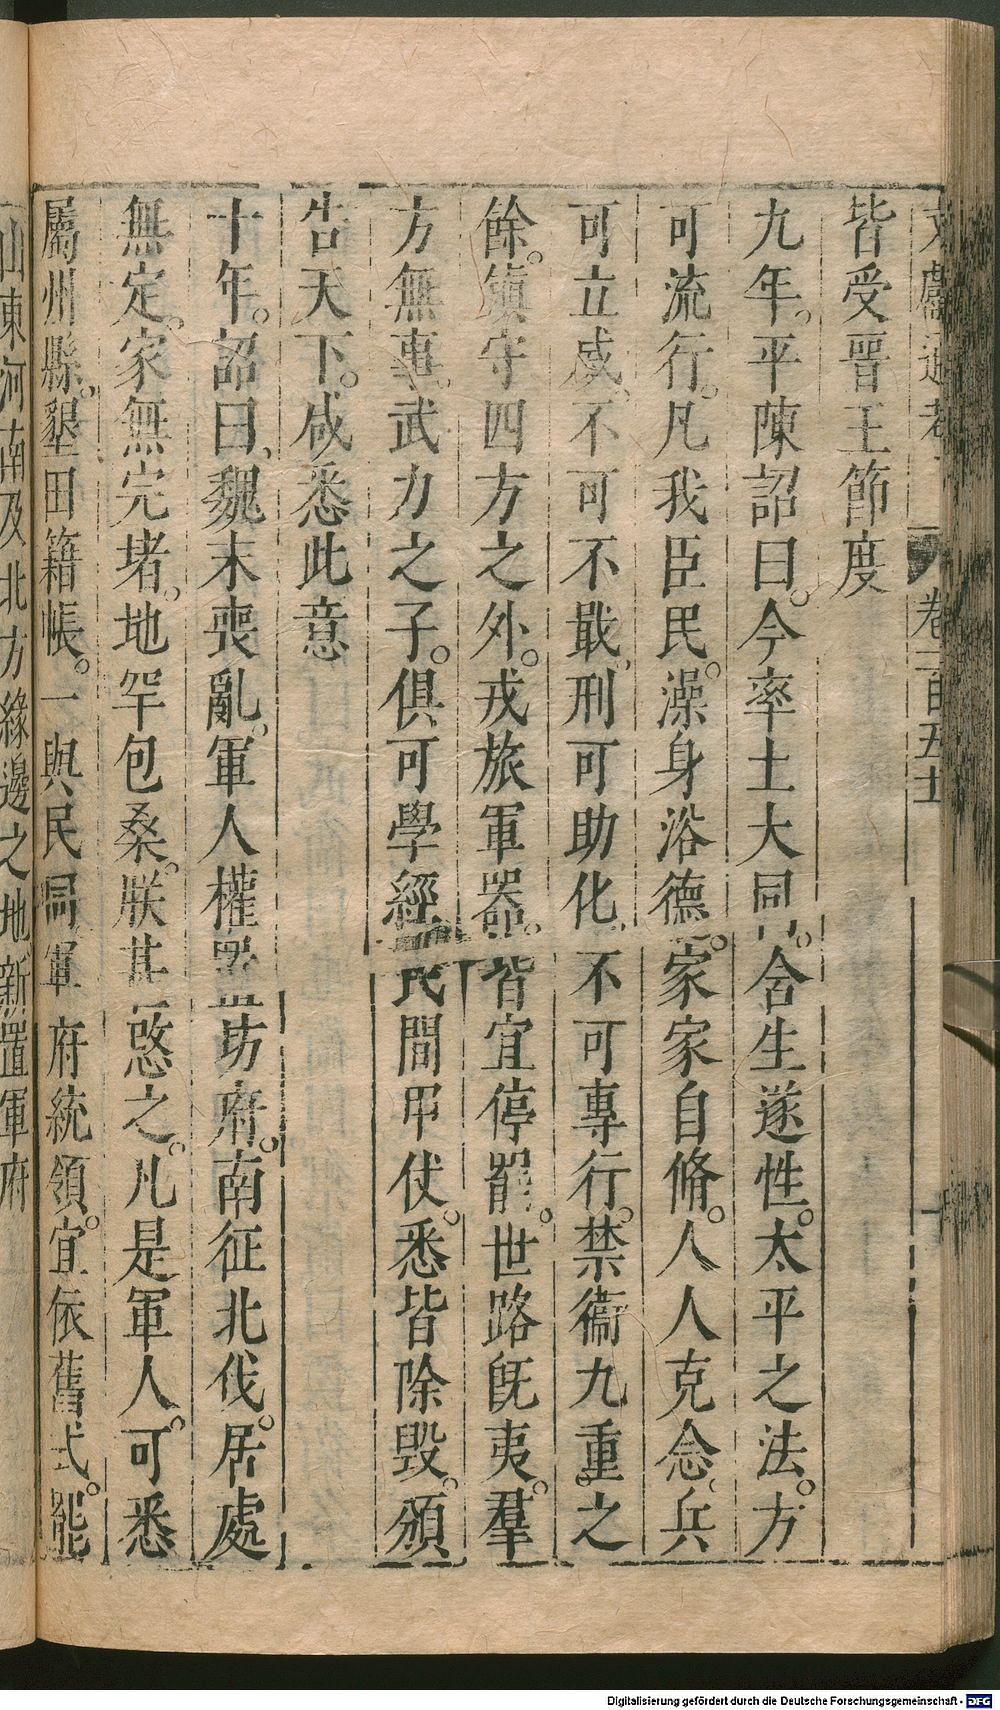 文獻通考 卷一百五十一
皆受晉王節度
九年。平陳詔曰。今率土大同。含生遂性。太平之法。方
可流行。凡我臣民。澡身浴德。家家自脩。人人克念。兵
可立威。不可不戢。刑可助化。不可專行。禁衞九重之
餘。鎮守四方之外。戎旅軍器。皆宜停罷。世路旣夷。羣
方無事。武力之子。俱可學經。民間甲仗。悉皆除毀。頒
告天下。咸悉此意
十年。詔曰。魏末喪亂。軍人權置坊府。南征北伐。居處
無定。家無完堵。地罕包桑。朕甚愍之。凡是軍人。可悉
屬州縣。墾田籍帳。一與民同。軍府統領。宜依舊式。罷
山東河南及北方緣邊之地新置軍府
Digitalisierung gefördert durch die Deutsche Forschungsgemeinschaft - DFG